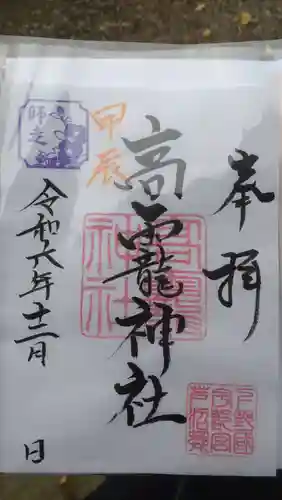 奉拝
高龗神社
甲辰
師走
令和六年十二月 日